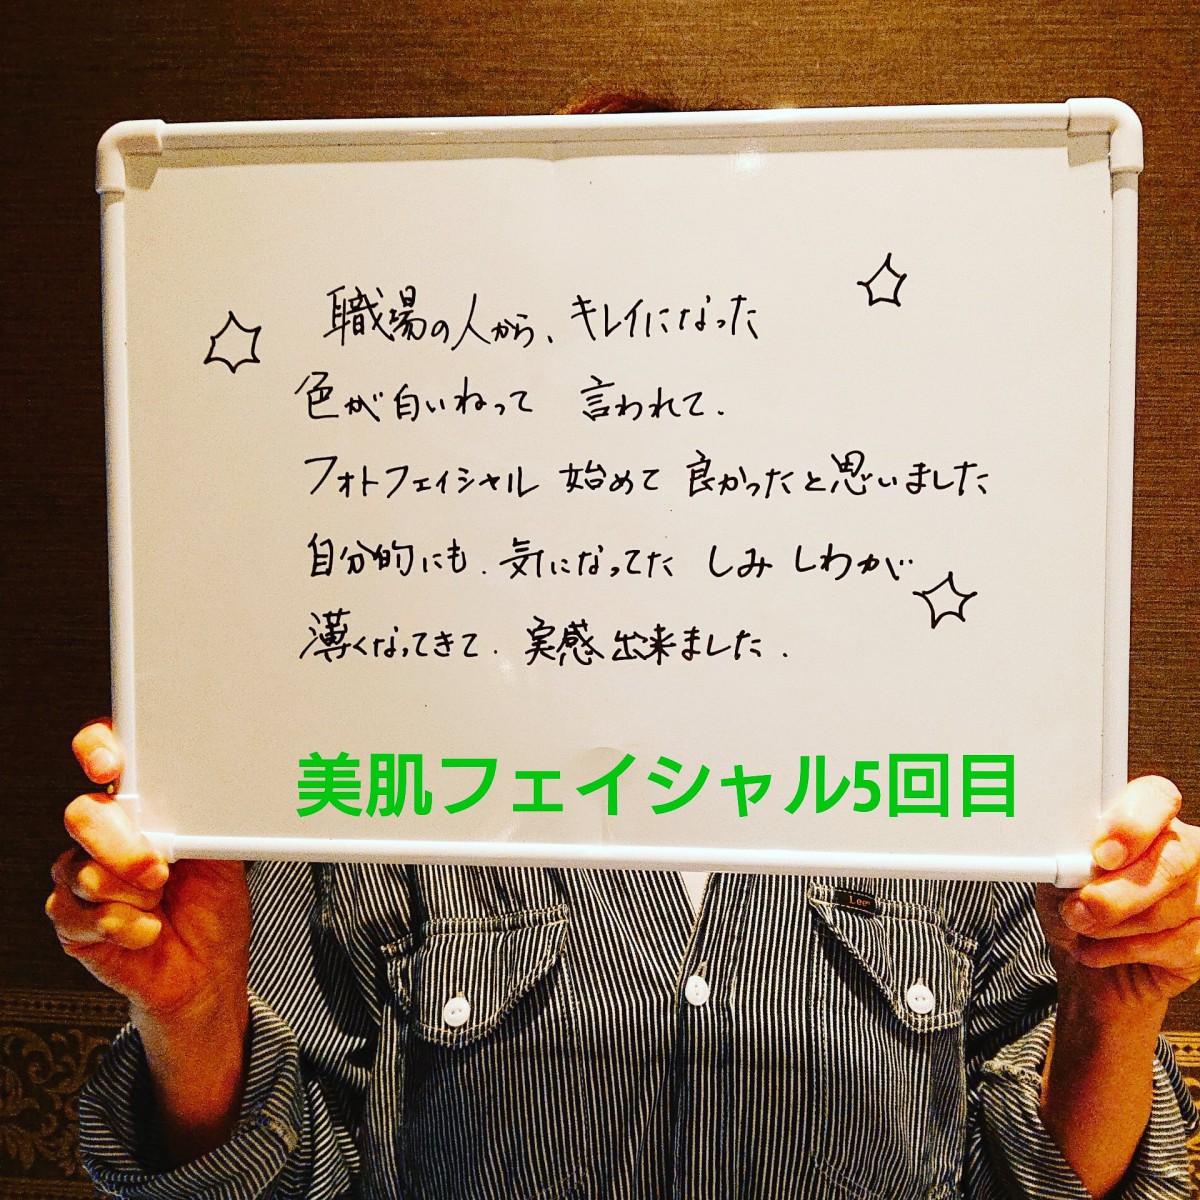 職場の人から、キレイになった
色が白いねって 言われて.
フォトフェイシャル 始めて 良かったと思いました
自分的にも.気になってた しみ しわが
薄くなってきて.実感出来ました.
美肌フェイシャル5回目
Lee